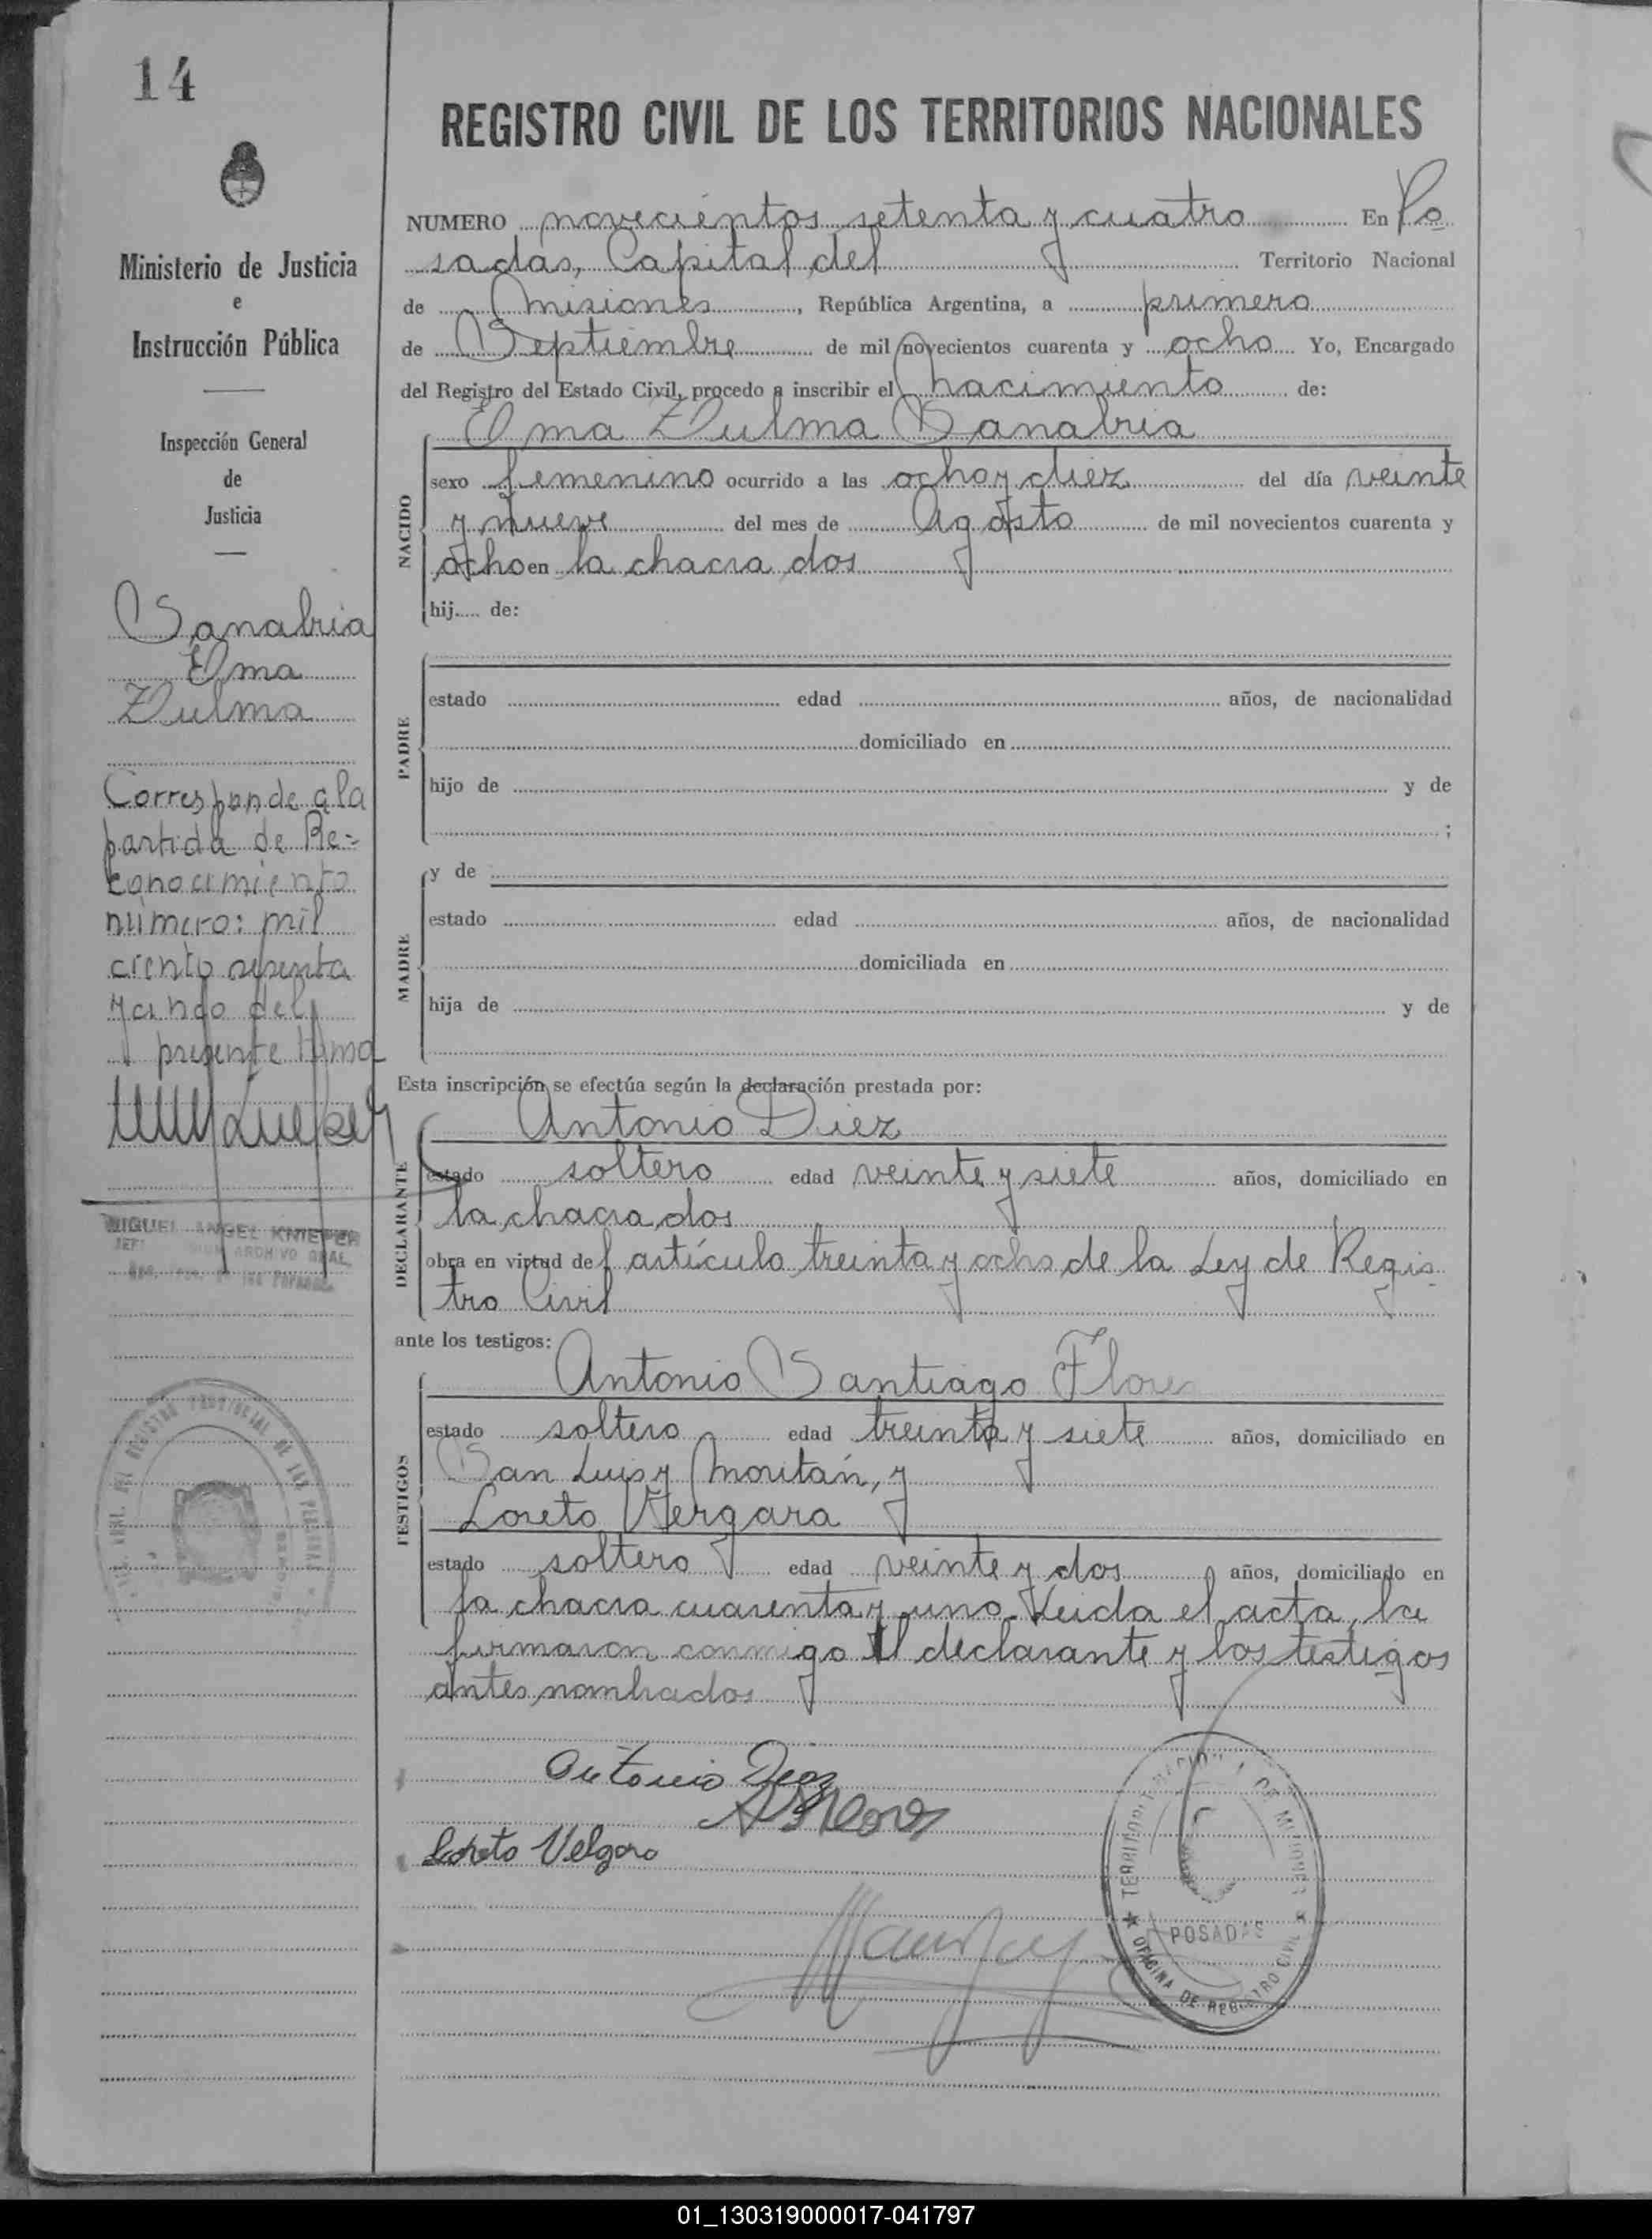 14
Ministerio de Justicia
e
Instrucción Pública
Inspección General
de
Justicia
Sanabria
Elma
Zulma
Corresponde a la
partida de Re-
conocimiento
número: mil
ciento sesenta
y cinco del
presente tomo
MIGUEL ANGEL KNIEPER
ARCHIVO GRAL.
REGISTRO CIVIL DE LOS TERRITORIOS NACIONALES
NUMERO novecientos setenta y cuatro En Po
sadas, Capital del Territorio Nacional
de Misiones, República Argentina, a primero
de Septiembre de mil novecientos cuarenta y ocho Yo, Encargado
del Registro del Estado Civil, procedo a inscribir el nacimiento de:
Elma Zulma Sanabria
NACIDO
sexo femenino ocurrido a las ocho y diez del día veinte
y nueve del mes de Agosto de mil novecientos cuarenta y
ocho en la chacra dos
hij..... de:
PADRE
estado edad años, de nacionalidad
domiciliado en
hijo de y de
;
MADRE
y de
estado edad años, de nacionalidad
domiciliada en
hija de y de
Esta inscripción se efectúa según la declaración prestada por:
Antonio Diez
DECLARANTE
estado soltero edad veinte y siete años, domiciliado en
la chacra dos
obra en virtud del artículo treinta y ocho de la Ley de Regis
tro Civil
ante los testigos:
Antonio Santiago Flores
TESTIGOS
estado soltero edad treinta y siete años, domiciliado en
San Luis y Moritán, y
Loreto Vergara
estado soltero edad veinte y dos años, domiciliado en
la chacra cuarenta y uno. Leida el acta, la
firmaron conmigo el declarante y los testigos
antes nombrados
Antonio Diez
ASFlores
Loreto Velgara
TERRITORIO NACIONAL DE MISIONES
POSADAS
OFICINA DE REGISTRO CIVIL
01_130319000017-041797